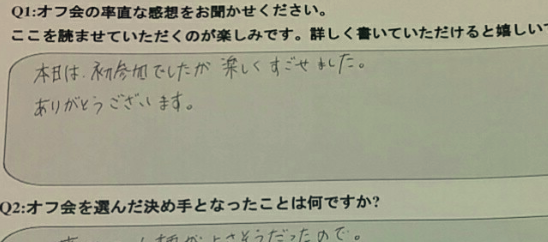 Q1:オフ会の率直な感想をお聞かせください。
ここを読ませていただくのが楽しみです。詳しく書いていただけると嬉しいで
本日は、初参加でしたが楽しくすごせました。
ありがとうございます。
Q2:オフ会を選んだ決め手となったことは何ですか?
そうだったので。